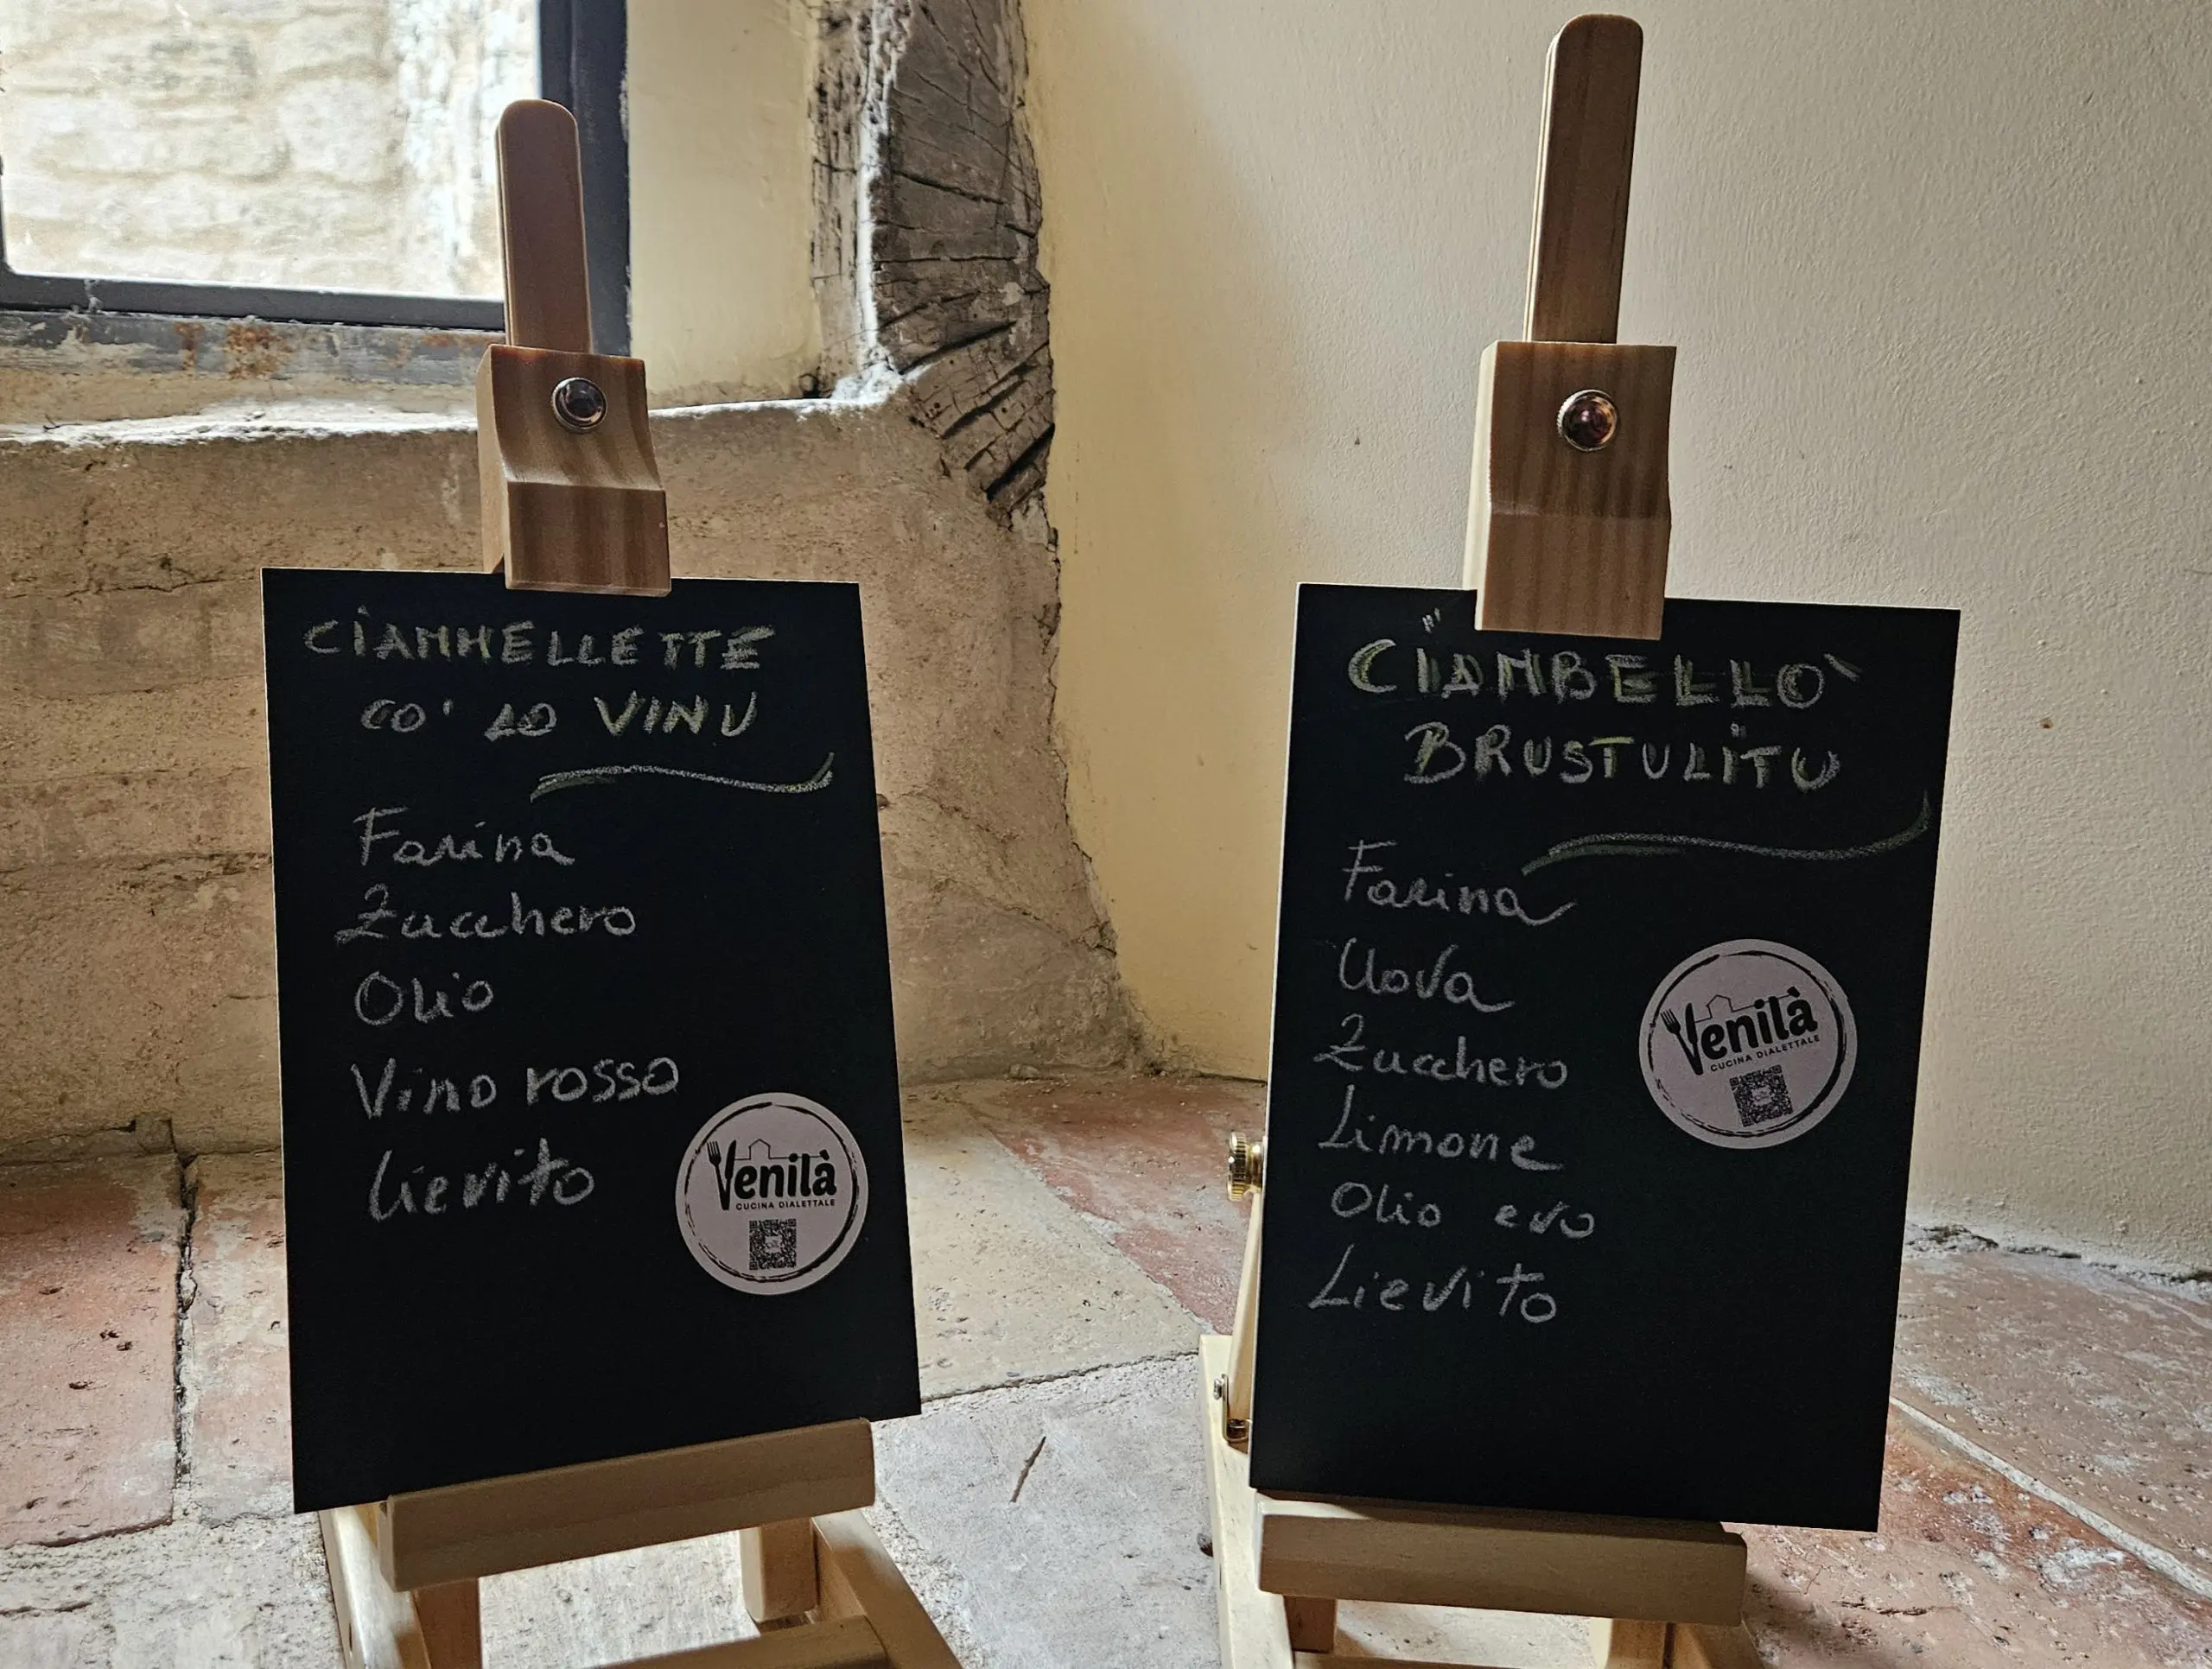 CIAMMELLETTE
CO' LO VINU
Farina
Zucchero
Olio
Vino rosso
Lievito
Venilà
CUCINA DIALETTALE
CIAMBELLO`
BRUSTULITU
Farina
Uova
Zucchero
Limone
Olio evo
Lievito
Venilà
CUCINA DIALETTALE